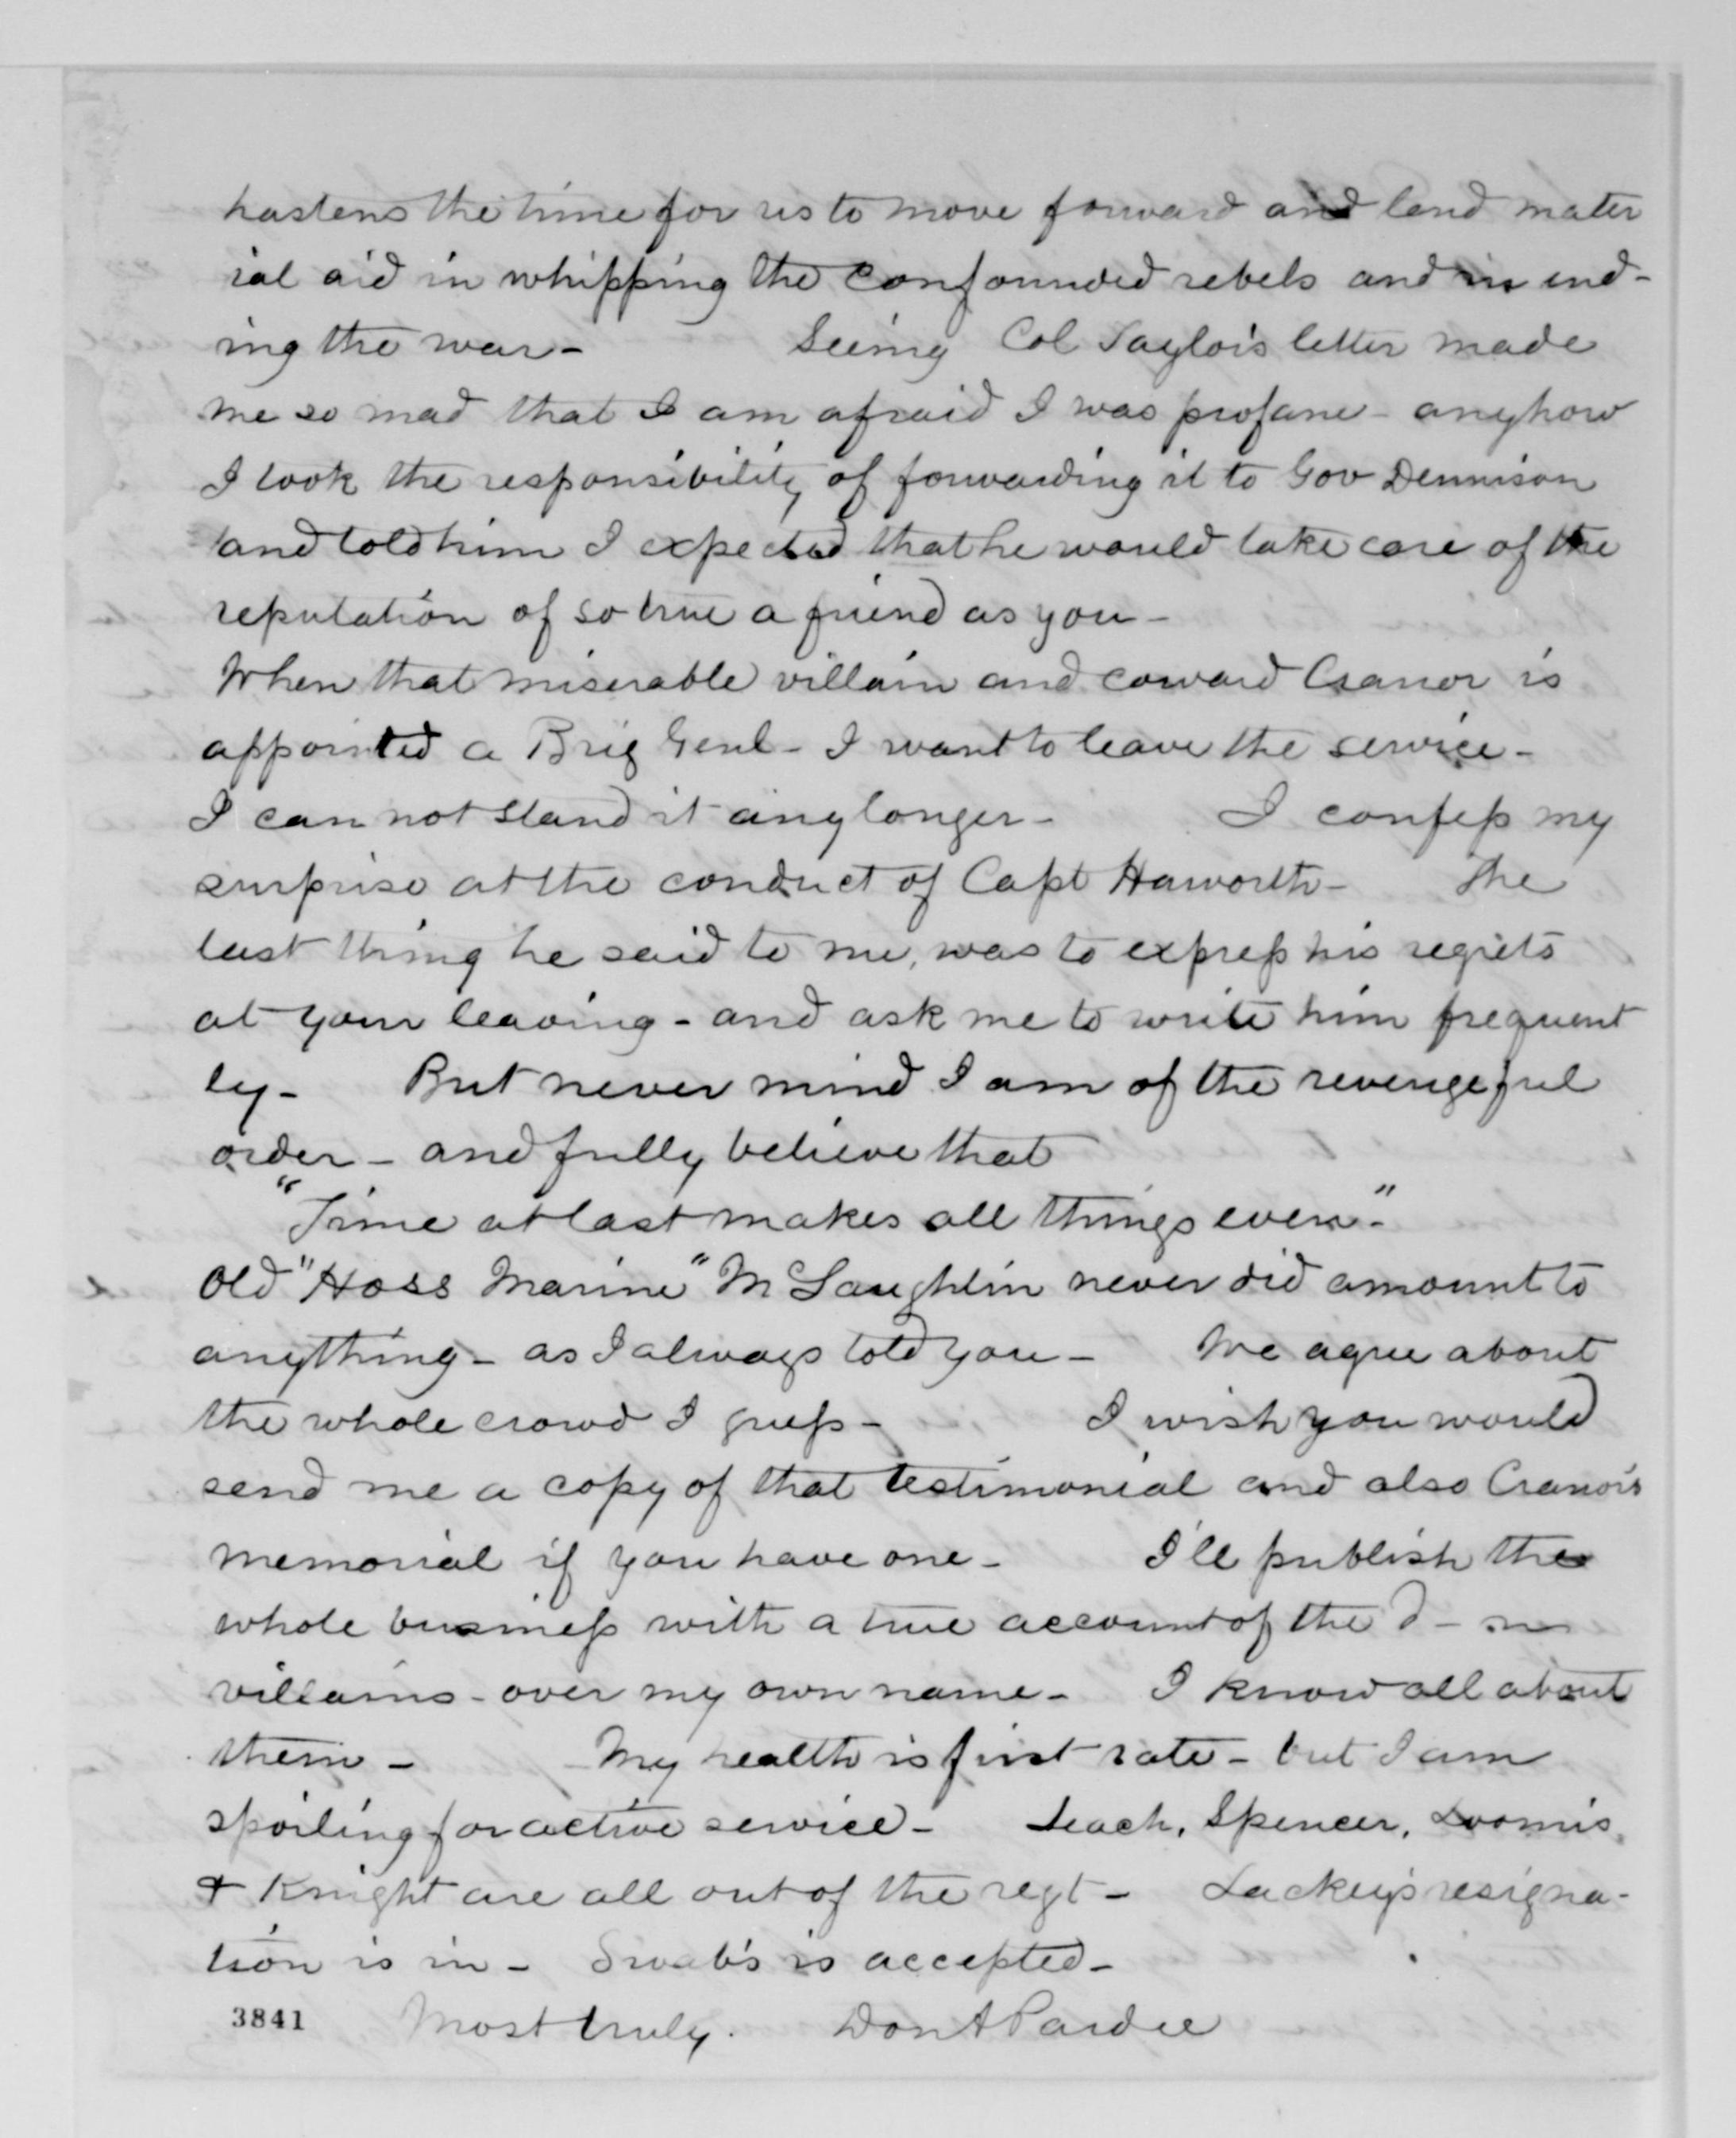 hastens the time for us to move forward and lend mater
ial aid in whipping the confounded rebels and in end-
ing the war - Seeing Col Taylor's letter made
me so mad that I am afraid I was profane - anyhow
I took the responsibility of forwarding it to Gov Dennison
and told him I expected that he would take care of the
reputation of so true a friend as you -
When that miserable villain and coward Cranor is
appointed a Brig Genl - I want to leave the service -
I can not stand it any longer - I confess my
surprise at the conduct of Capt Haworth - The
last thing he said to me, was to express his regrets
at your leaving - and ask me to write him frequent
ly - But never mind I am of the revengeful
order - and fully believe that
"Time at last makes all things even -"
Old "Hoss Marine" McLaughlin never did amount to
anything - as I always told you - We agree about
the whole crowd I guess - I wish you would
send me a copy of that testimonial and also Cranor's
memorial if you have one - I'll publish the
whole business with a true account of the d - n
villains - over my own name - I know all about
them - My health is first rate - but I am
spoiling for active service - Leach, Spencer, Loomis,
& Knight are all out of the regt - Lackey's resigna-
tion is in - Swab's is accepted -
3841 Most truly. Don A Pardee